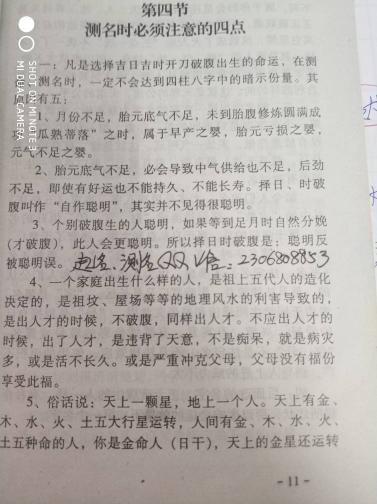 第四节
测名时必须注意的四点
一：凡是选择吉日吉时开刀破腹出生的命运，在测
测名时，一定不会达到四柱八字中的暗示份量。其
有五：
1、月份不足，胎元底气不足，未到胎腹修炼圆满成
“瓜熟蒂落”之时，属于早产之婴，胎元亏损之婴，
元气不足之婴。
2、胎元底气不足，必会导致中气供给也不足，后劲
不足，即使有好运也不能持久、不能长寿。择日、时破
腹叫作“自作聪明”，其实并不见得很聪明。
3、个别破腹生的人聪明，如果等到足月时自然分娩
(才破腹)，此人会更聪明。所以择日时破腹是：聪明反
被聪明误。
起名、测名QQ V信：2306808853
4、一个家庭出生什么样的人，是祖上五代人的造化
决定的，是祖坟、屋场等等的地理风水的利害导致的，
是出人才的时候，不破腹，同样出人才。不应出人才的
时候，出了人才，是违背了天意，不是痴呆，就是病灾
多，或是活不长久。或是严重冲克父母，父母没有福份
享受此福。
5、俗话说：天上一颗星，地上一个人。天上有金、
木、水、火、土五大行星运转，人间有金、木、水、火、
土五种命的人，你是金命人（日干），天上的金星还运转
-11-
SHOT ON MI NOTE 3
MI DUAL CAMERA